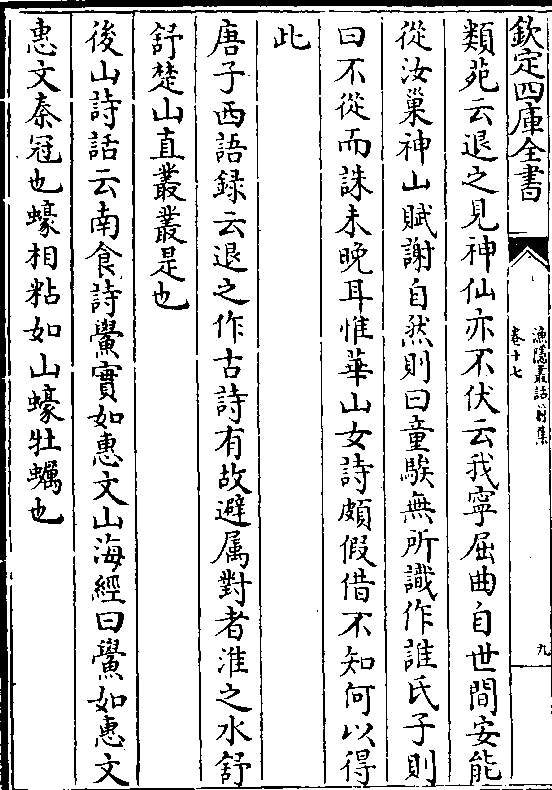 欽定四庫全書
漁隱叢話前集
卷十七
九
類苑云退之見神仙亦不伏云我寧屈曲自世間安能
從汝巢神山賦謝自然則曰童騃無所識作誰氏子則
曰不從而誅未晚耳惟華山女詩頗假借不知何以得
此
唐子西語録云退之作古詩有故避属對者淮之水舒
舒楚山直叢叢是也
後山詩話云南食詩鱟實如惠文山海經曰鱟如惠文
惠文秦冠也蠔相粘如山蠔牡蠣也